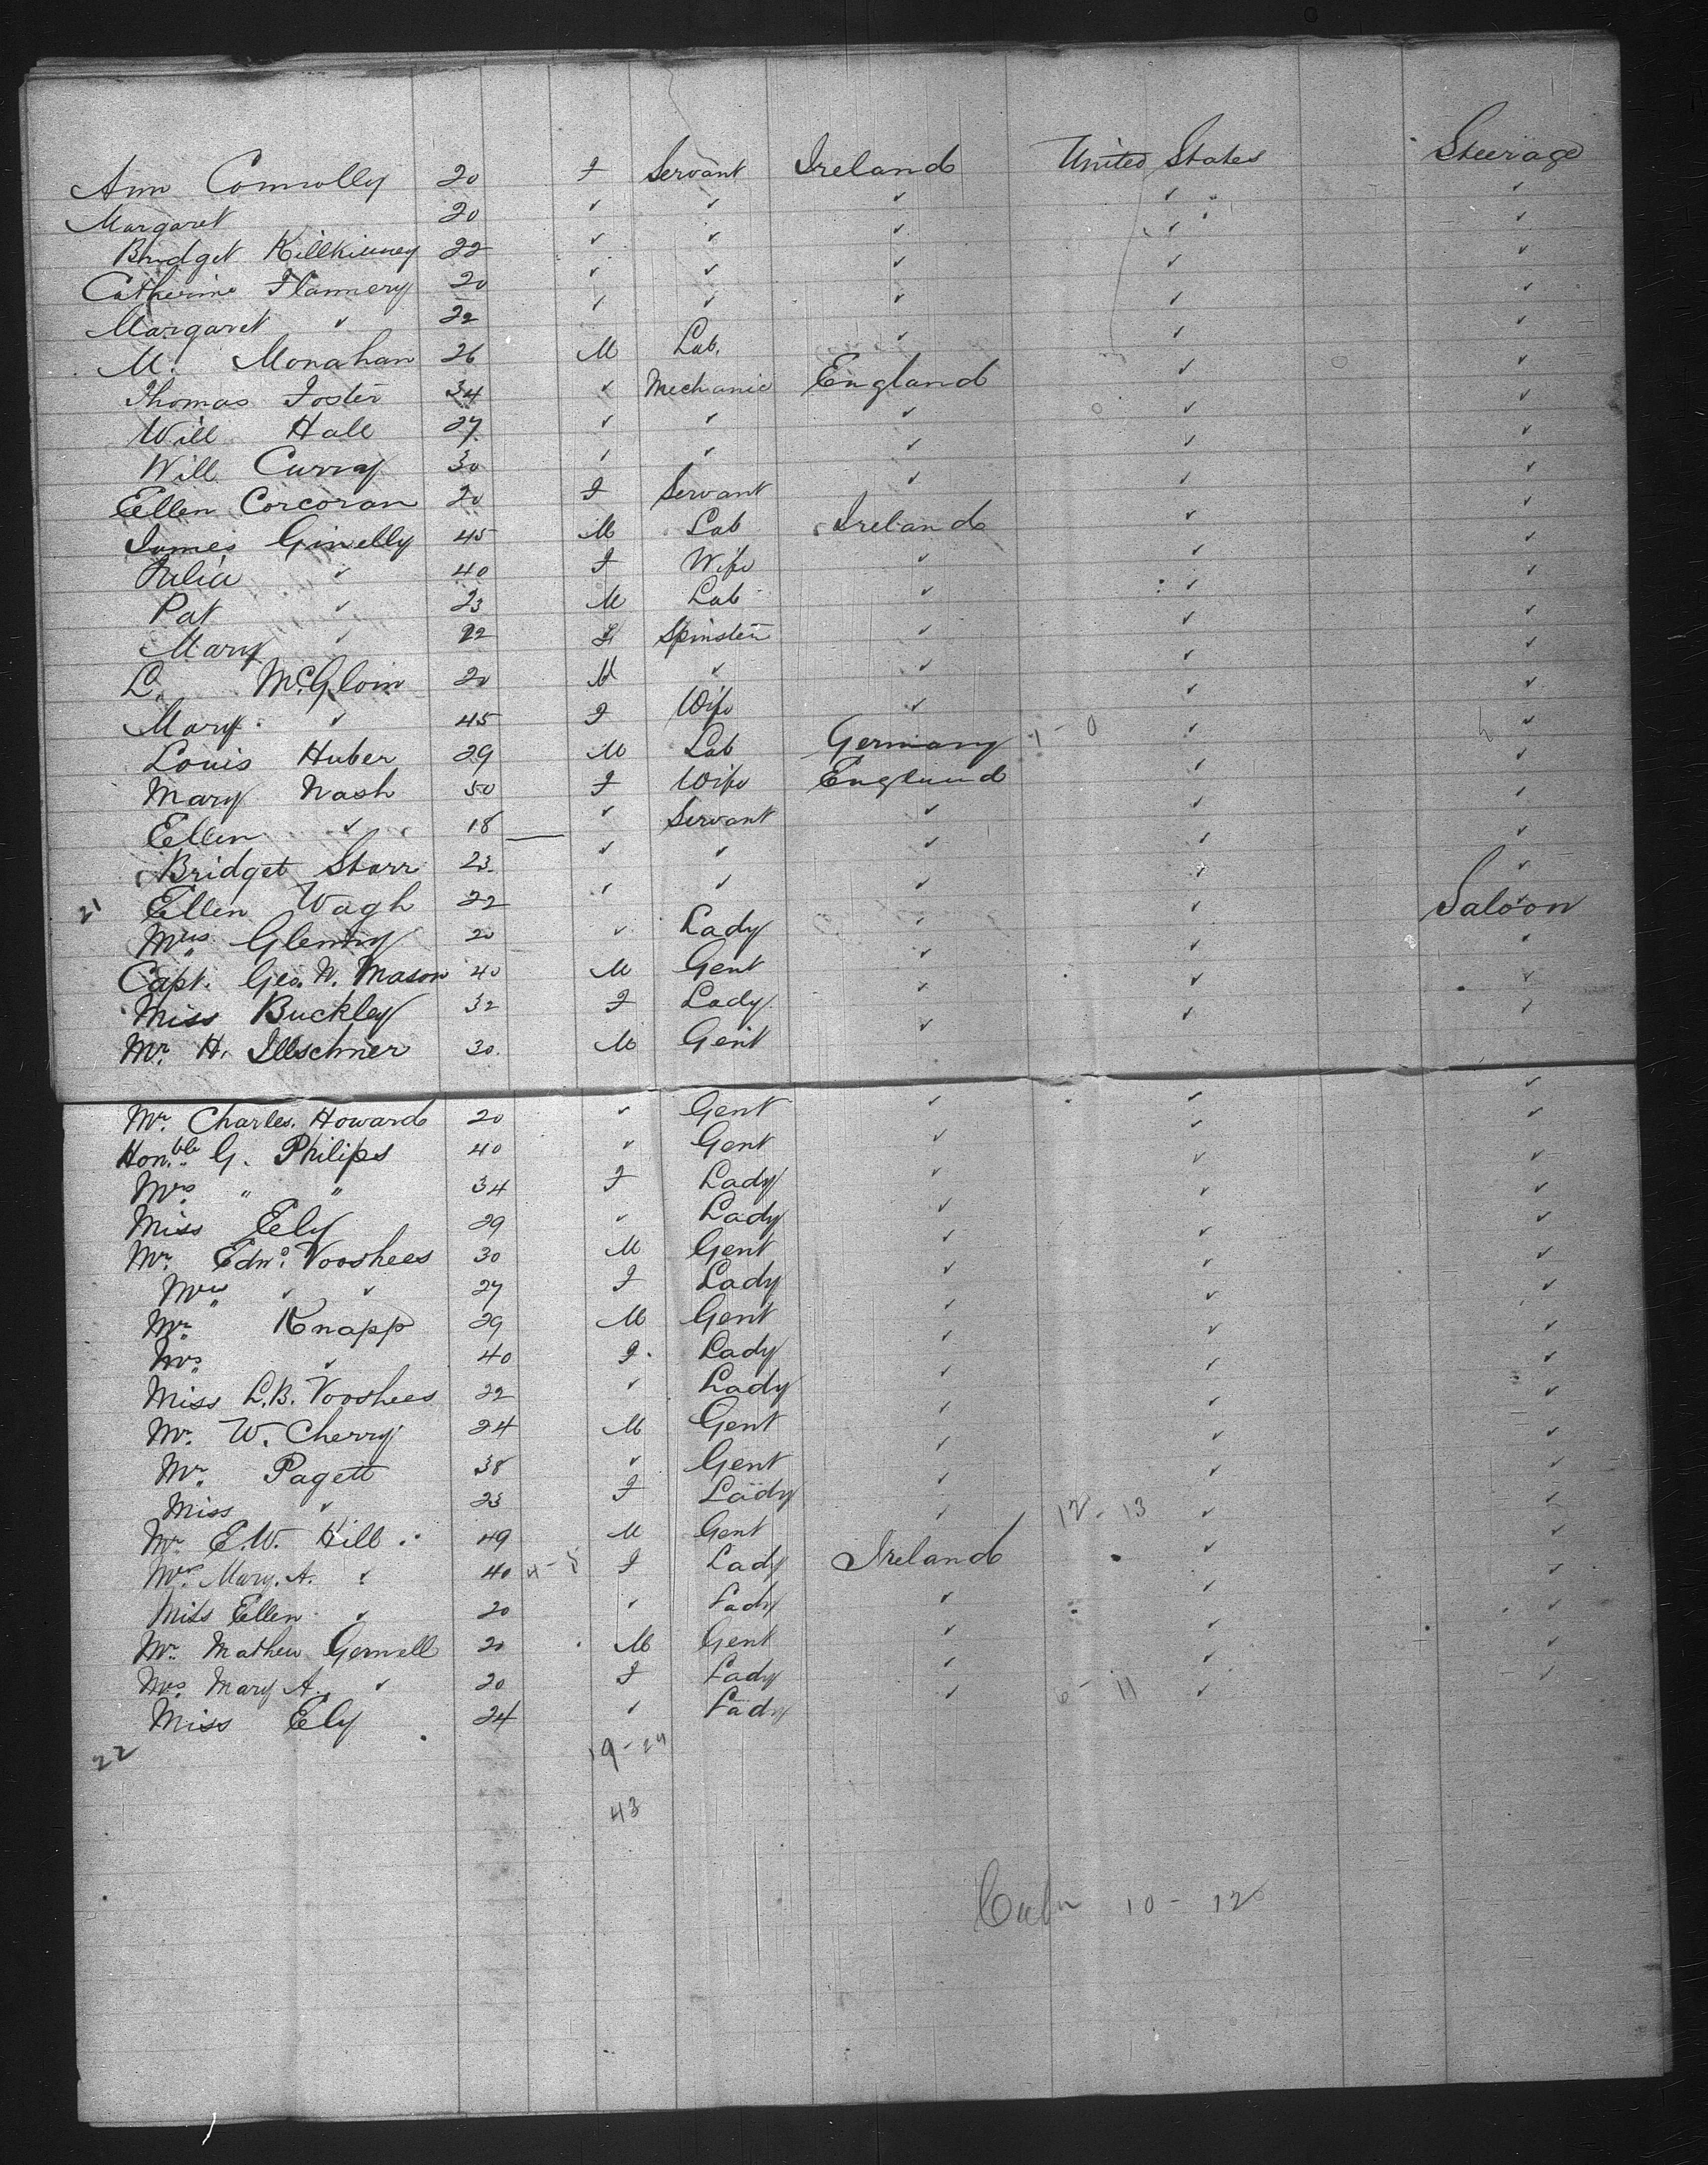 Ann Connolly 20 F Servant Ireland United States Steerage
Margaret 20 ✓ ✓ ✓ ✓ ✓
Bridget Killkinney 22 ✓ ✓ ✓ ✓ ✓
Catherine Flannery 20 ✓ ✓ ✓ ✓ ✓
Margaret ✓ 22 ✓ ✓ ✓ ✓ ✓
M. Monahan 26 M Lab. ✓ ✓ ✓
Thomas Foster 34 ✓ Mechanic England ✓ ✓
Will Hall 27 ✓ ✓ ✓ ✓ ✓
Will Curray 30 ✓ ✓ ✓ ✓ ✓
Ellen Corcoran 20 F Servant ✓ ✓ ✓
James Ginelly 45 M Lab Ireland ✓ ✓
Julia ✓ 40 F Wife ✓ ✓ ✓
Pat ✓ 23 M Lab ✓ ✓ ✓
Mary ✓ 22 F Spinster ✓ ✓ ✓
L. McGloin 20 M ✓ ✓ ✓ ✓
Mary ✓ 45 F Wife ✓ ✓ ✓
Louis Huber 29 M Lab Germany 1 - 0 ✓ ✓
Mary Nash 50 F Wife England ✓ ✓
Ellen ✓ 18 ✓ Servant ✓ ✓ ✓
Bridget Starr 23 ✓ ✓ ✓ ✓ ✓
21 Ellen Wagh 22 ✓ ✓ ✓ ✓ ✓
Mrs Glenny 20 ✓ Lady ✓ ✓ Saloon
Capt. Geo. W. Mason 40 M Gent ✓ ✓ ✓
Miss Buckley 32 F Lady ✓ ✓ ✓
Mr. H. Illschner 30 M Gent ✓ ✓ ✓
Mr. Charles Howard 20 ✓ Gent ✓ ✓ ✓
Honble G. Philips 40 ✓ Gent ✓ ✓ ✓
Mrs " " 34 F Lady ✓ ✓ ✓
Miss Eely 29 ✓ Lady ✓ ✓ ✓
Mr. Edwd Voorhees 30 M Gent ✓ ✓ ✓
Mrs ✓ ✓ 27 F Lady ✓ ✓ ✓
Mr. Knapp 29 M Gent ✓ ✓ ✓
Mrs ✓ 40 F Lady ✓ ✓ ✓
Miss L.B. Voorhees 22 ✓ Lady ✓ ✓ ✓
Mr. W. Cherry 24 M Gent ✓ ✓ ✓
Mr. Pagett 38 ✓ Gent ✓ ✓ ✓
Miss ✓ 23 F Lady ✓ ✓ ✓
Mr. E.W. Hill 49 M Gent ✓ 12 - 13 ✓ ✓
Mrs. Mary. A. ✓ 40 4 - 5 F Lady Ireland ✓ ✓
Miss Ellen ✓ 20 ✓ Lady ✓ ✓ ✓
Mr. Mathew Gemell 20 M Gent ✓ ✓ ✓
Mrs Mary A. ✓ 20 F Lady ✓ ✓ ✓
Miss Ely 24 ✓ Lady ✓ 6 - 11 ✓
22 19 - 24
43
10 - 12